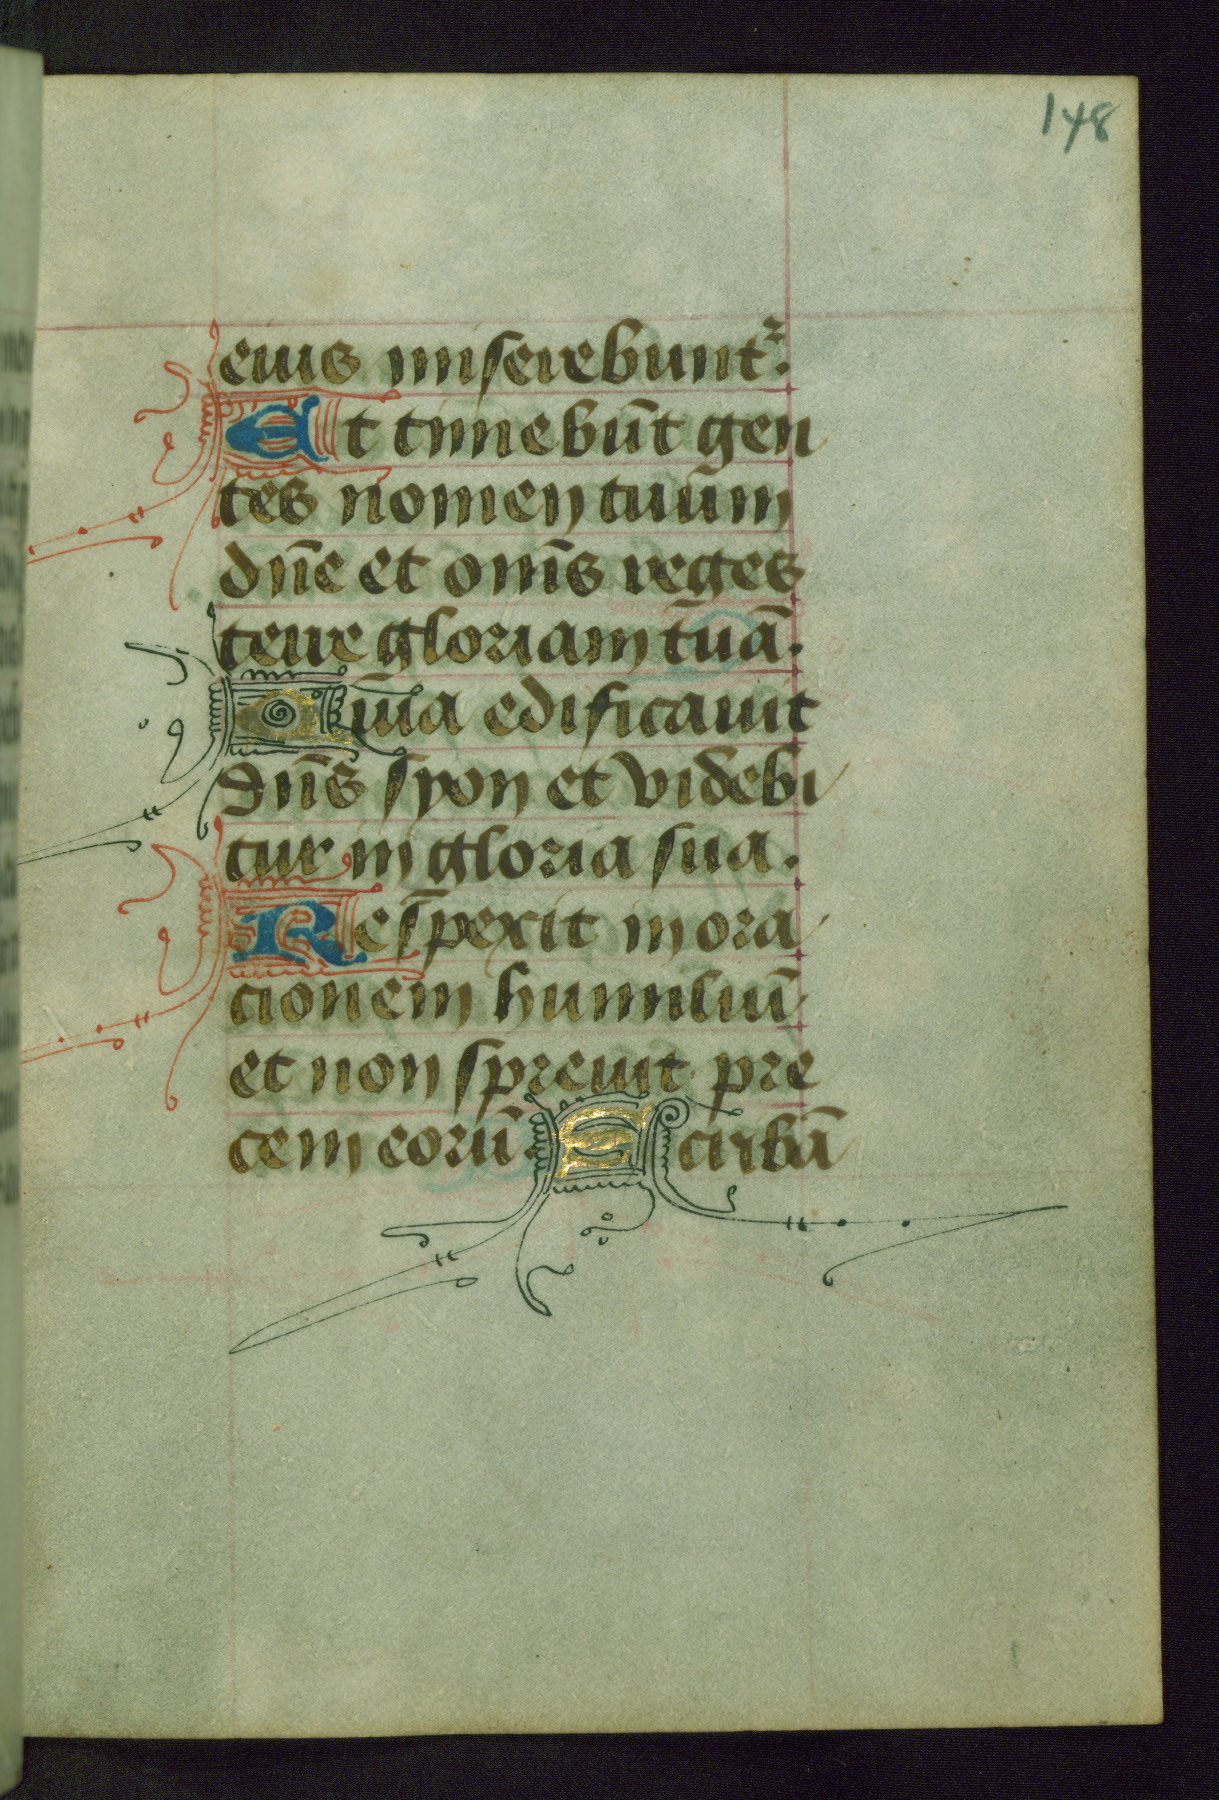 148
eius miserebunt᷑.
Et timebūt gen
tes nomen tuum
dn̄e et om̄s reges
terre gloriam tuā.
Quia edificauit
dn̄s syon et videbi
tur in gloria sua.
Respexit in ora
cionem humiliū
et non spreuit pre
cem eorū. Scribā